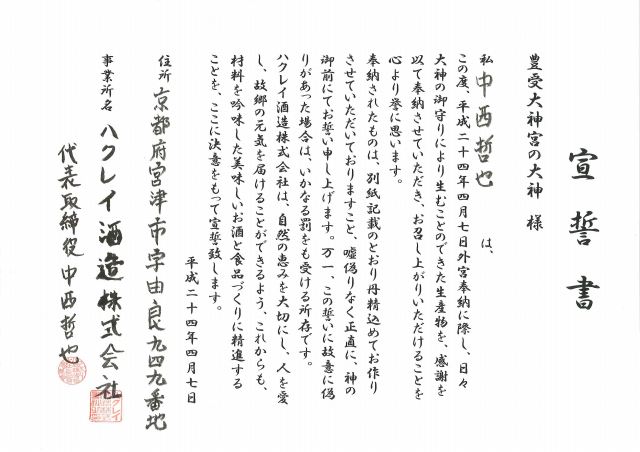 宣誓書
豊受大神宮の大神 様
私 中西哲也 は、
この度、平成二十四年四月七日外宮奉納に際し、日々
大神の御守りにより生むことのできた生産物を、感謝を
以て奉納させていただき、お召し上がりいただけることを
心より誉に思います。
奉納されたものは、別紙記載のとおり丹精込めてお作り
させていただいておりますこと、嘘偽りなく正直に、神の
御前にてお誓い申し上げます。万一、この誓いに故意に偽
りがあった場合は、いかなる罰をも受ける所存です。
ハクレイ酒造株式会社は、自然の恵みを大切にし、人を愛
し、故郷の元気を届けることができるよう、これからも、
材料を吟味した美味しいお酒と食品づくりに精進する
ことを、ここに決意をもって宣誓致します。
平成二十四年四月七日
住所 京都府宮津市字由良九四九番地
事業所名 ハクレイ酒造株式会社
代表取締役 中西哲也